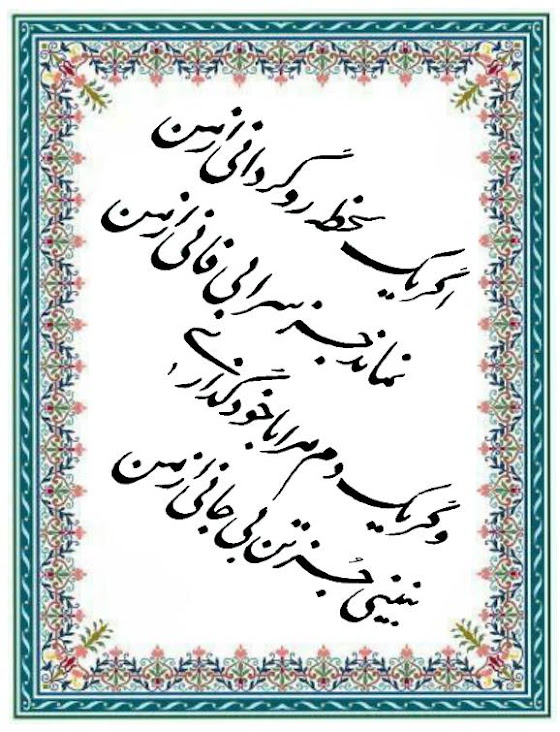 اگر یک لحظه رو گردانی از من
نماند جز سرابی فانی از من
وگر یک دم مرا با خود گذاری
نبینی جُز تن بی جانی از من